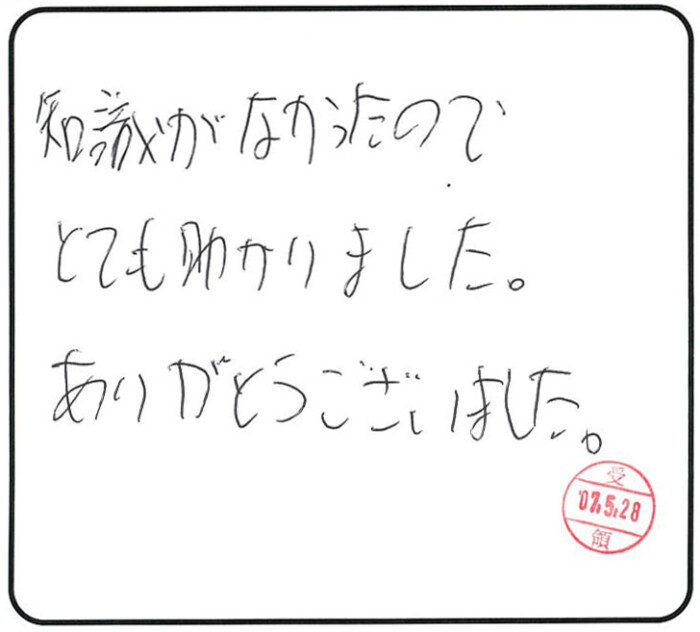 知識がなかったので
とても助かりました。
ありがとうございました。
受
'07.5.28
領